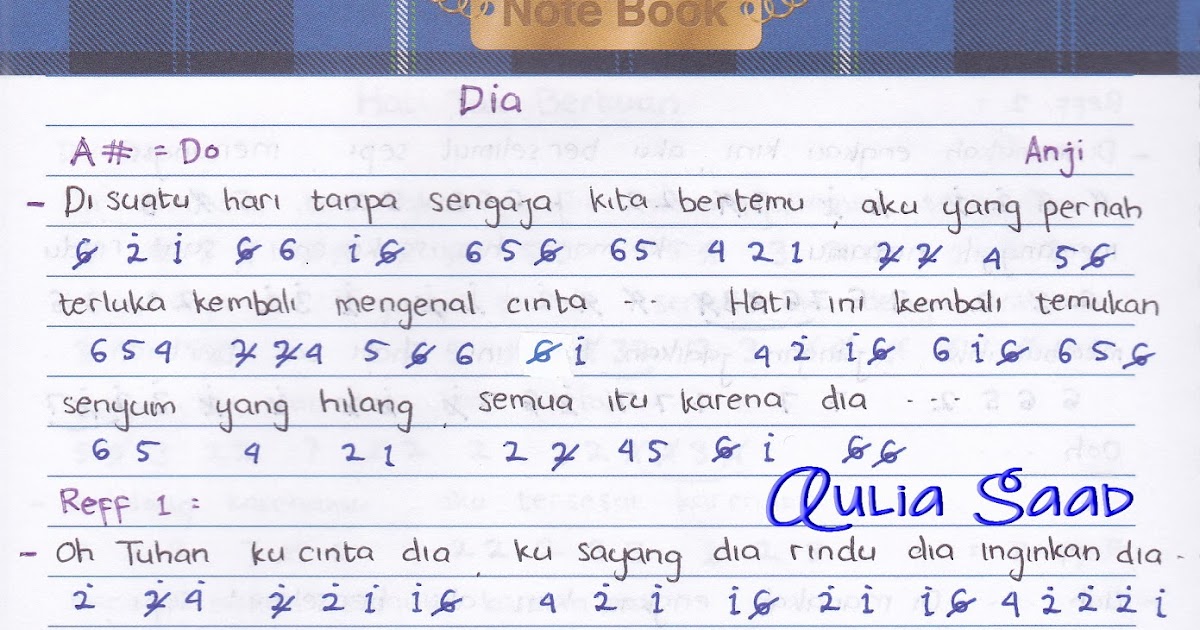 Note Book
Dia
A# = Do Anji
- Di suatu hari tanpa sengaja kita bertemu, aku yang pernah
6̸ 2̇ i̇ 6̸ 6 i̇ 6̸ 6 5 6̸ 6 5 4 2 1 2̸ 2̸ 4 5 6̸
terluka kembali mengenal cinta --- Hati ini kembali temukan
6 5 4 2̸ 2̸ 4 5 6̸ 6 6̸ i̇ 4 2̇ i̇ 6̸ 6 i̇ 6̸ 6 5 6̸
senyum yang hilang, semua itu karena dia ----
6 5 4 2 1 2 2̸ 4 5 6̸ i̇ 6̸ 6̸
Reff 1 :
Qulia Saad
- Oh Tuhan ku cinta dia, ku sayang dia rindu dia inginkan dia -
2̇ 2̸̇ 4̇ 2̸̇ 2̇ i̇ i̇ 6̸ 4 2̇ i̇ i̇ 6̸ 2̇ i̇ i̇ 6̸ 4 2̇ 2̇ 2̇ i̇